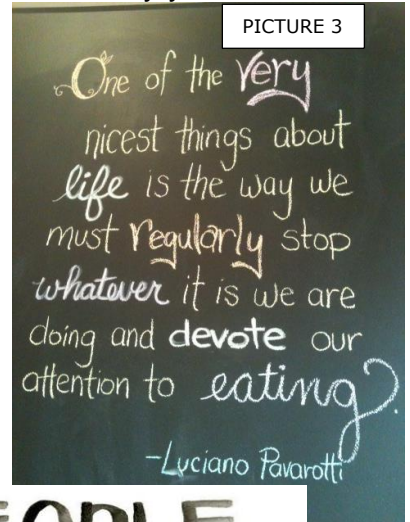 PICTURE 3
One of the very
nicest things about
life is the way we
must regularly stop
whatever it is we are
doing and devote our
attention to eating.
-Luciano Pavarotti